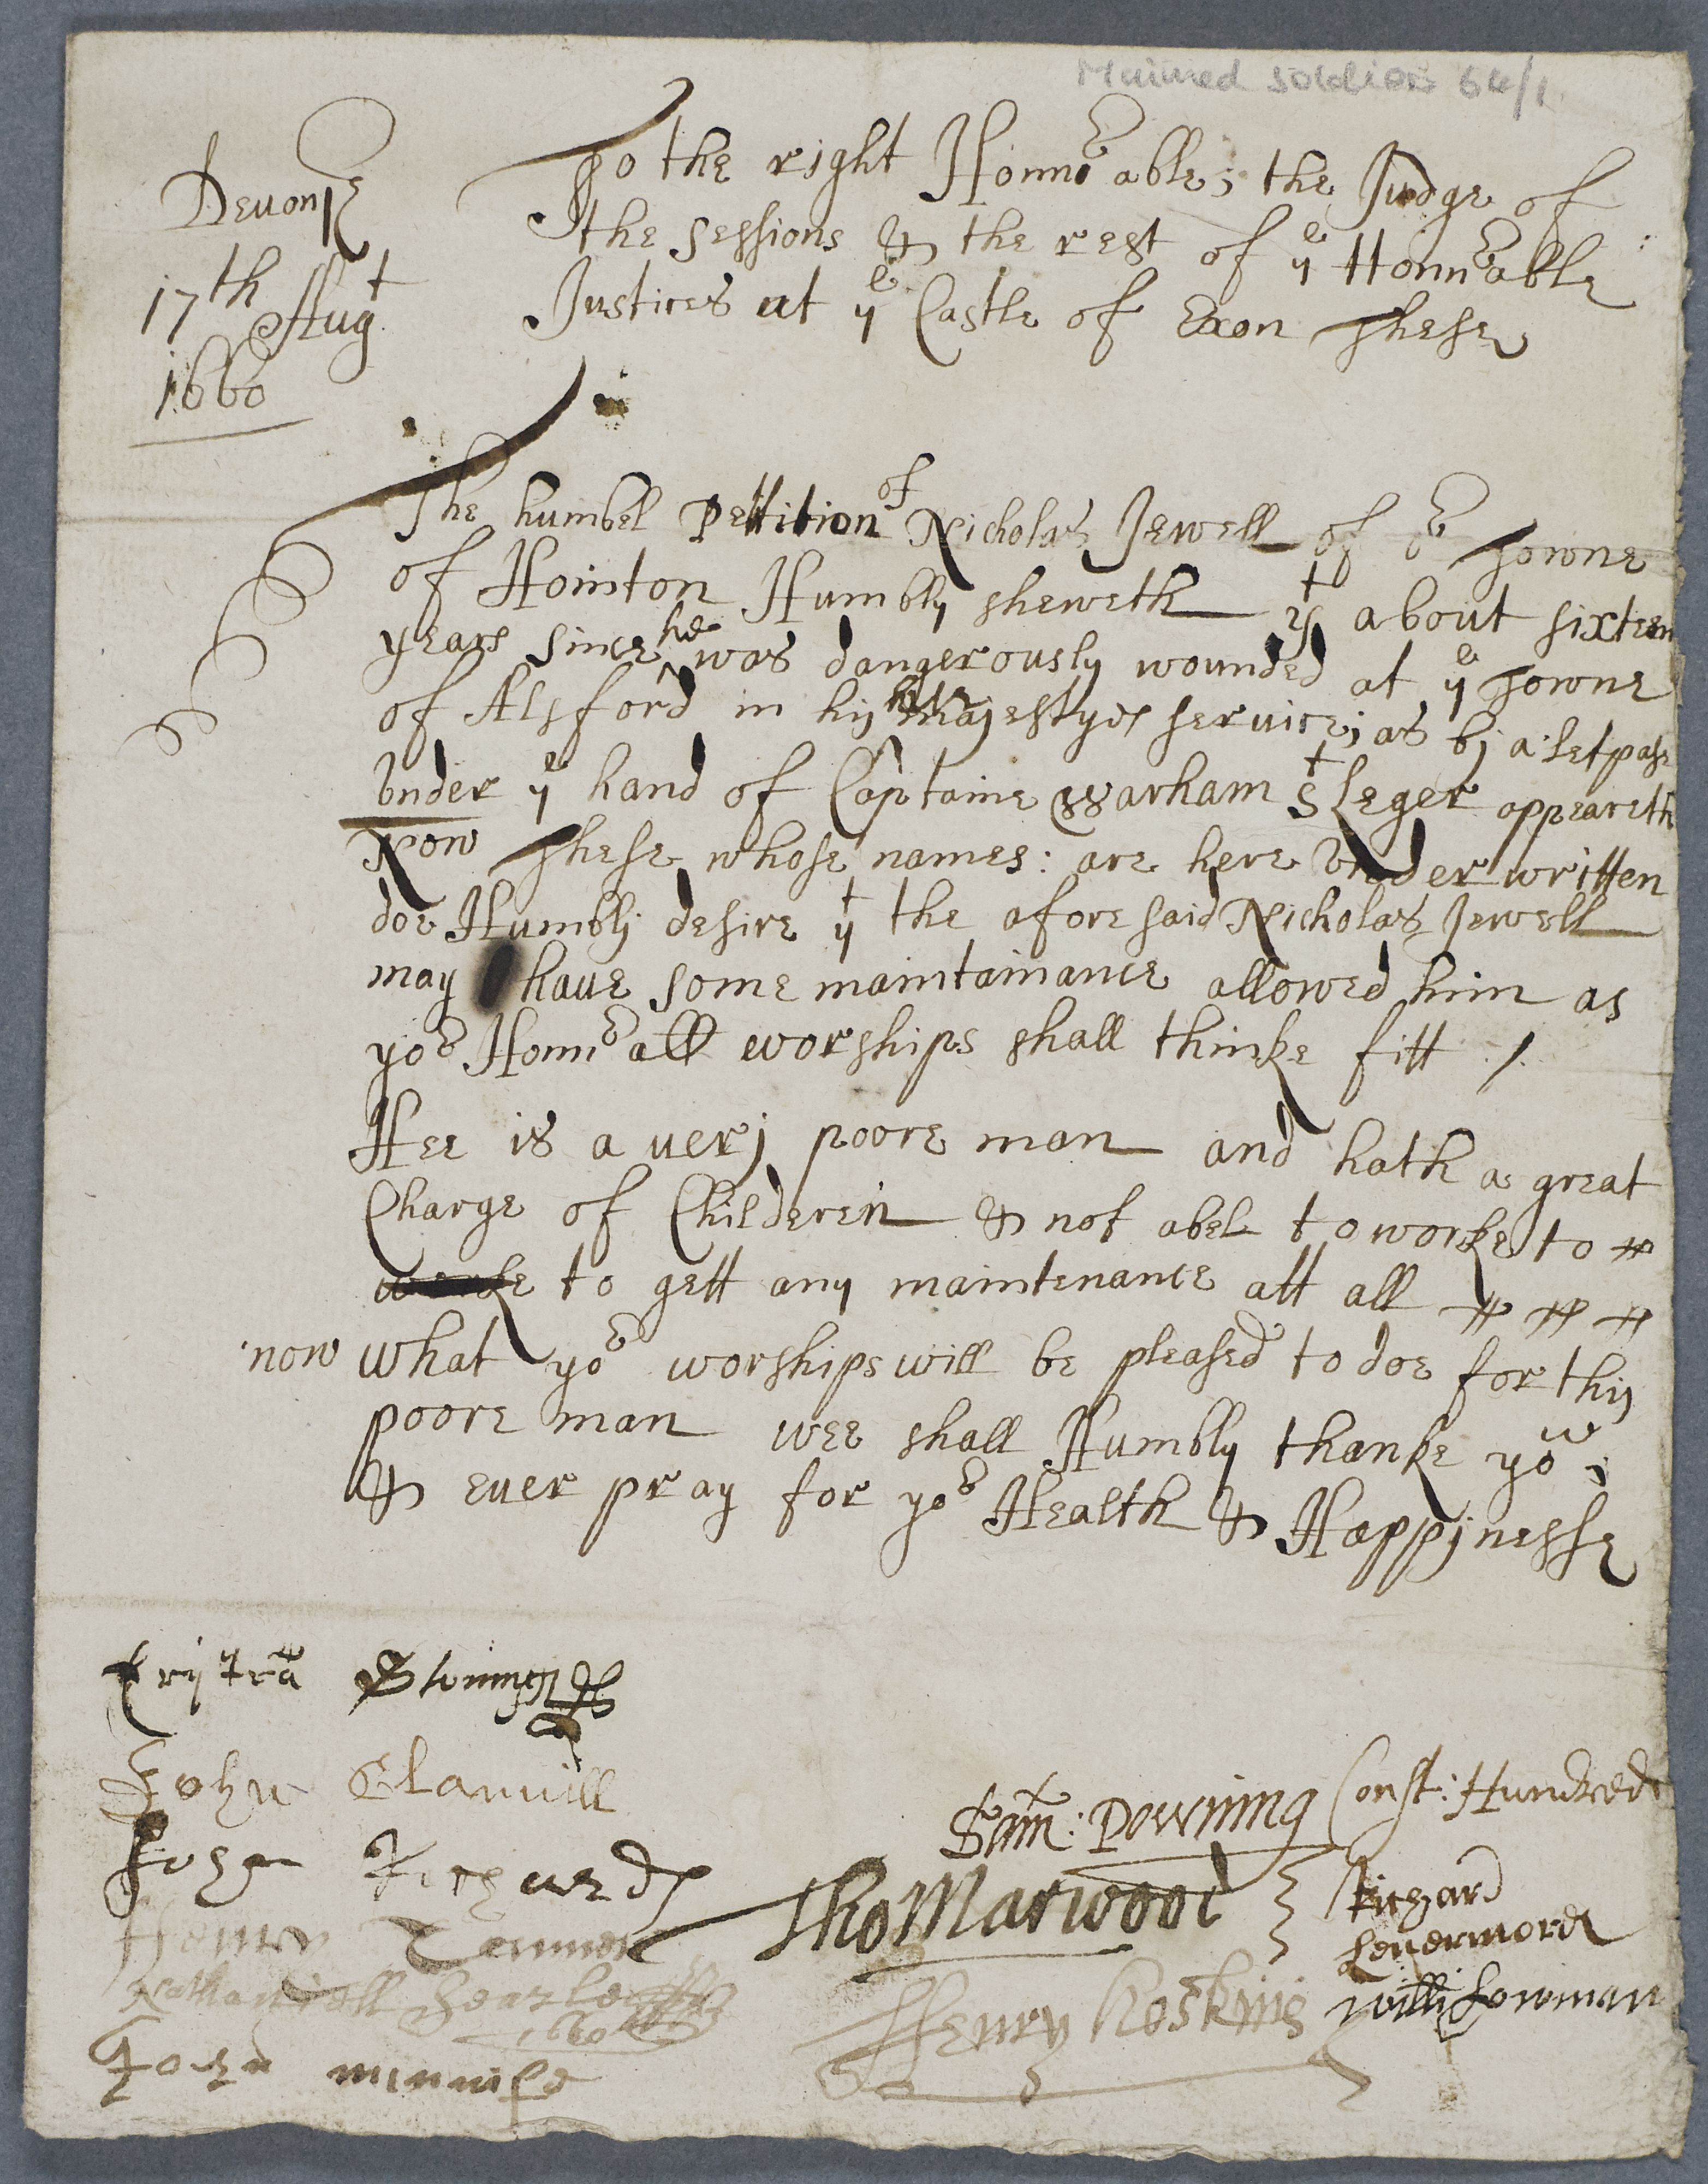 Maimed soldiers 64/1
Devon
17th Augt
1660
To the right Honnoable; the Judge of
the sessions & the rest of ye Honnoable
Justices at ye Castle of Exon These
The humbel Pettition of Nicholas Jewell of or Towne
of Honiton Humbly sheweth yt about sixteen
years since he was dangerously wounded at ye Towne
of Alsford in his late majestyes service; as bj a letpase
vnder ye hand of Captaine Warham St Leger appeareth
Now These whose names: are here Vnder written
doe Humblj desire yt the aforesaid Nicholas Jewell
may haue some maintainance allowed him as
yor Honnorall worships shall thinke fitt /.
Hee is a uerj poore man and hath a great
Charge of Childeren & not abel to worke to
worke to gett any maintenance att all
now what yor worships will be pleased to doe for this
poore man wee shall Humbly thanke you;
& euer pray for yor Health & Happjnesse
John Glanvill
Henry
Nathaniell Searle
1660
John minnife
Sam: Downing Const: Hundred
Tho Marwood
Richard
Levermore
Henry Hoskins
Willi Lowman